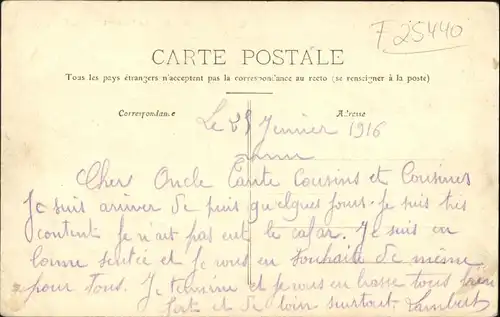 F 25440
CARTE POSTALE
Tous les pays étrangers n'acceptent pas la correspondance au recto (se renseigner à la poste)
Correspondance
Adresse
Le 25 Jenvier 1916
Cher Oncle Tante Cousins et Cousines
Je suis arriver de puis quelques jours. Je suis très
content Je n'ait pas eut le cafar. Je suis en
bonne sentée et je vous en souhaite de même
pour Tous. Je termine et je vous en brasse tous bien
fort et de loin surtout. Lambert